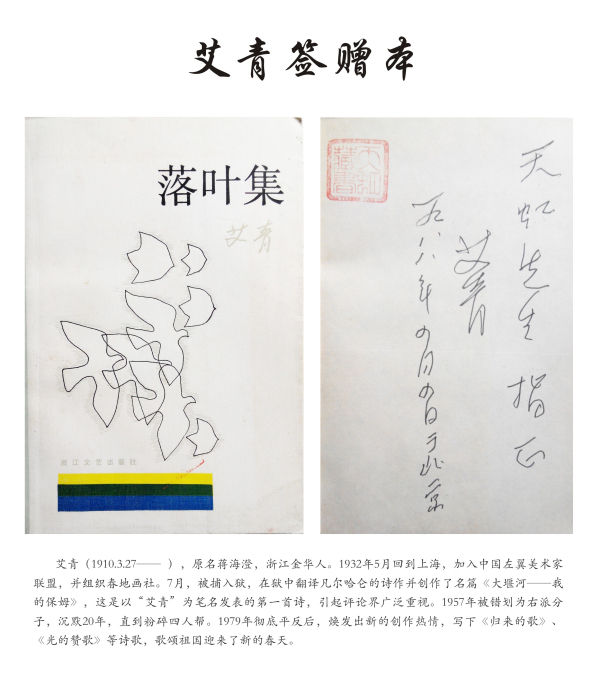 艾青签赠本
落叶集
艾青
浙江文艺出版社
天虹先生 指正
艾青
一九八八年四月四日于北京
艾青（1910.3.27—— ），原名蒋海澄，浙江金华人。1932年5月回到上海，加入中国左翼美术家
联盟，并组织春地画社。7月，被捕入狱，在狱中翻译凡尔哈仑的诗作并创作了名篇《大堰河——我
的保姆》，这是以“艾青”为笔名发表的第一首诗，引起评论界广泛重视。1957年被错划为右派分
子，沉默20年，直到粉碎四人帮。1979年彻底平反后，焕发出新的创作热情，写下《归来的歌》、
《光的赞歌》等诗歌，歌颂祖国迎来了新的春天。